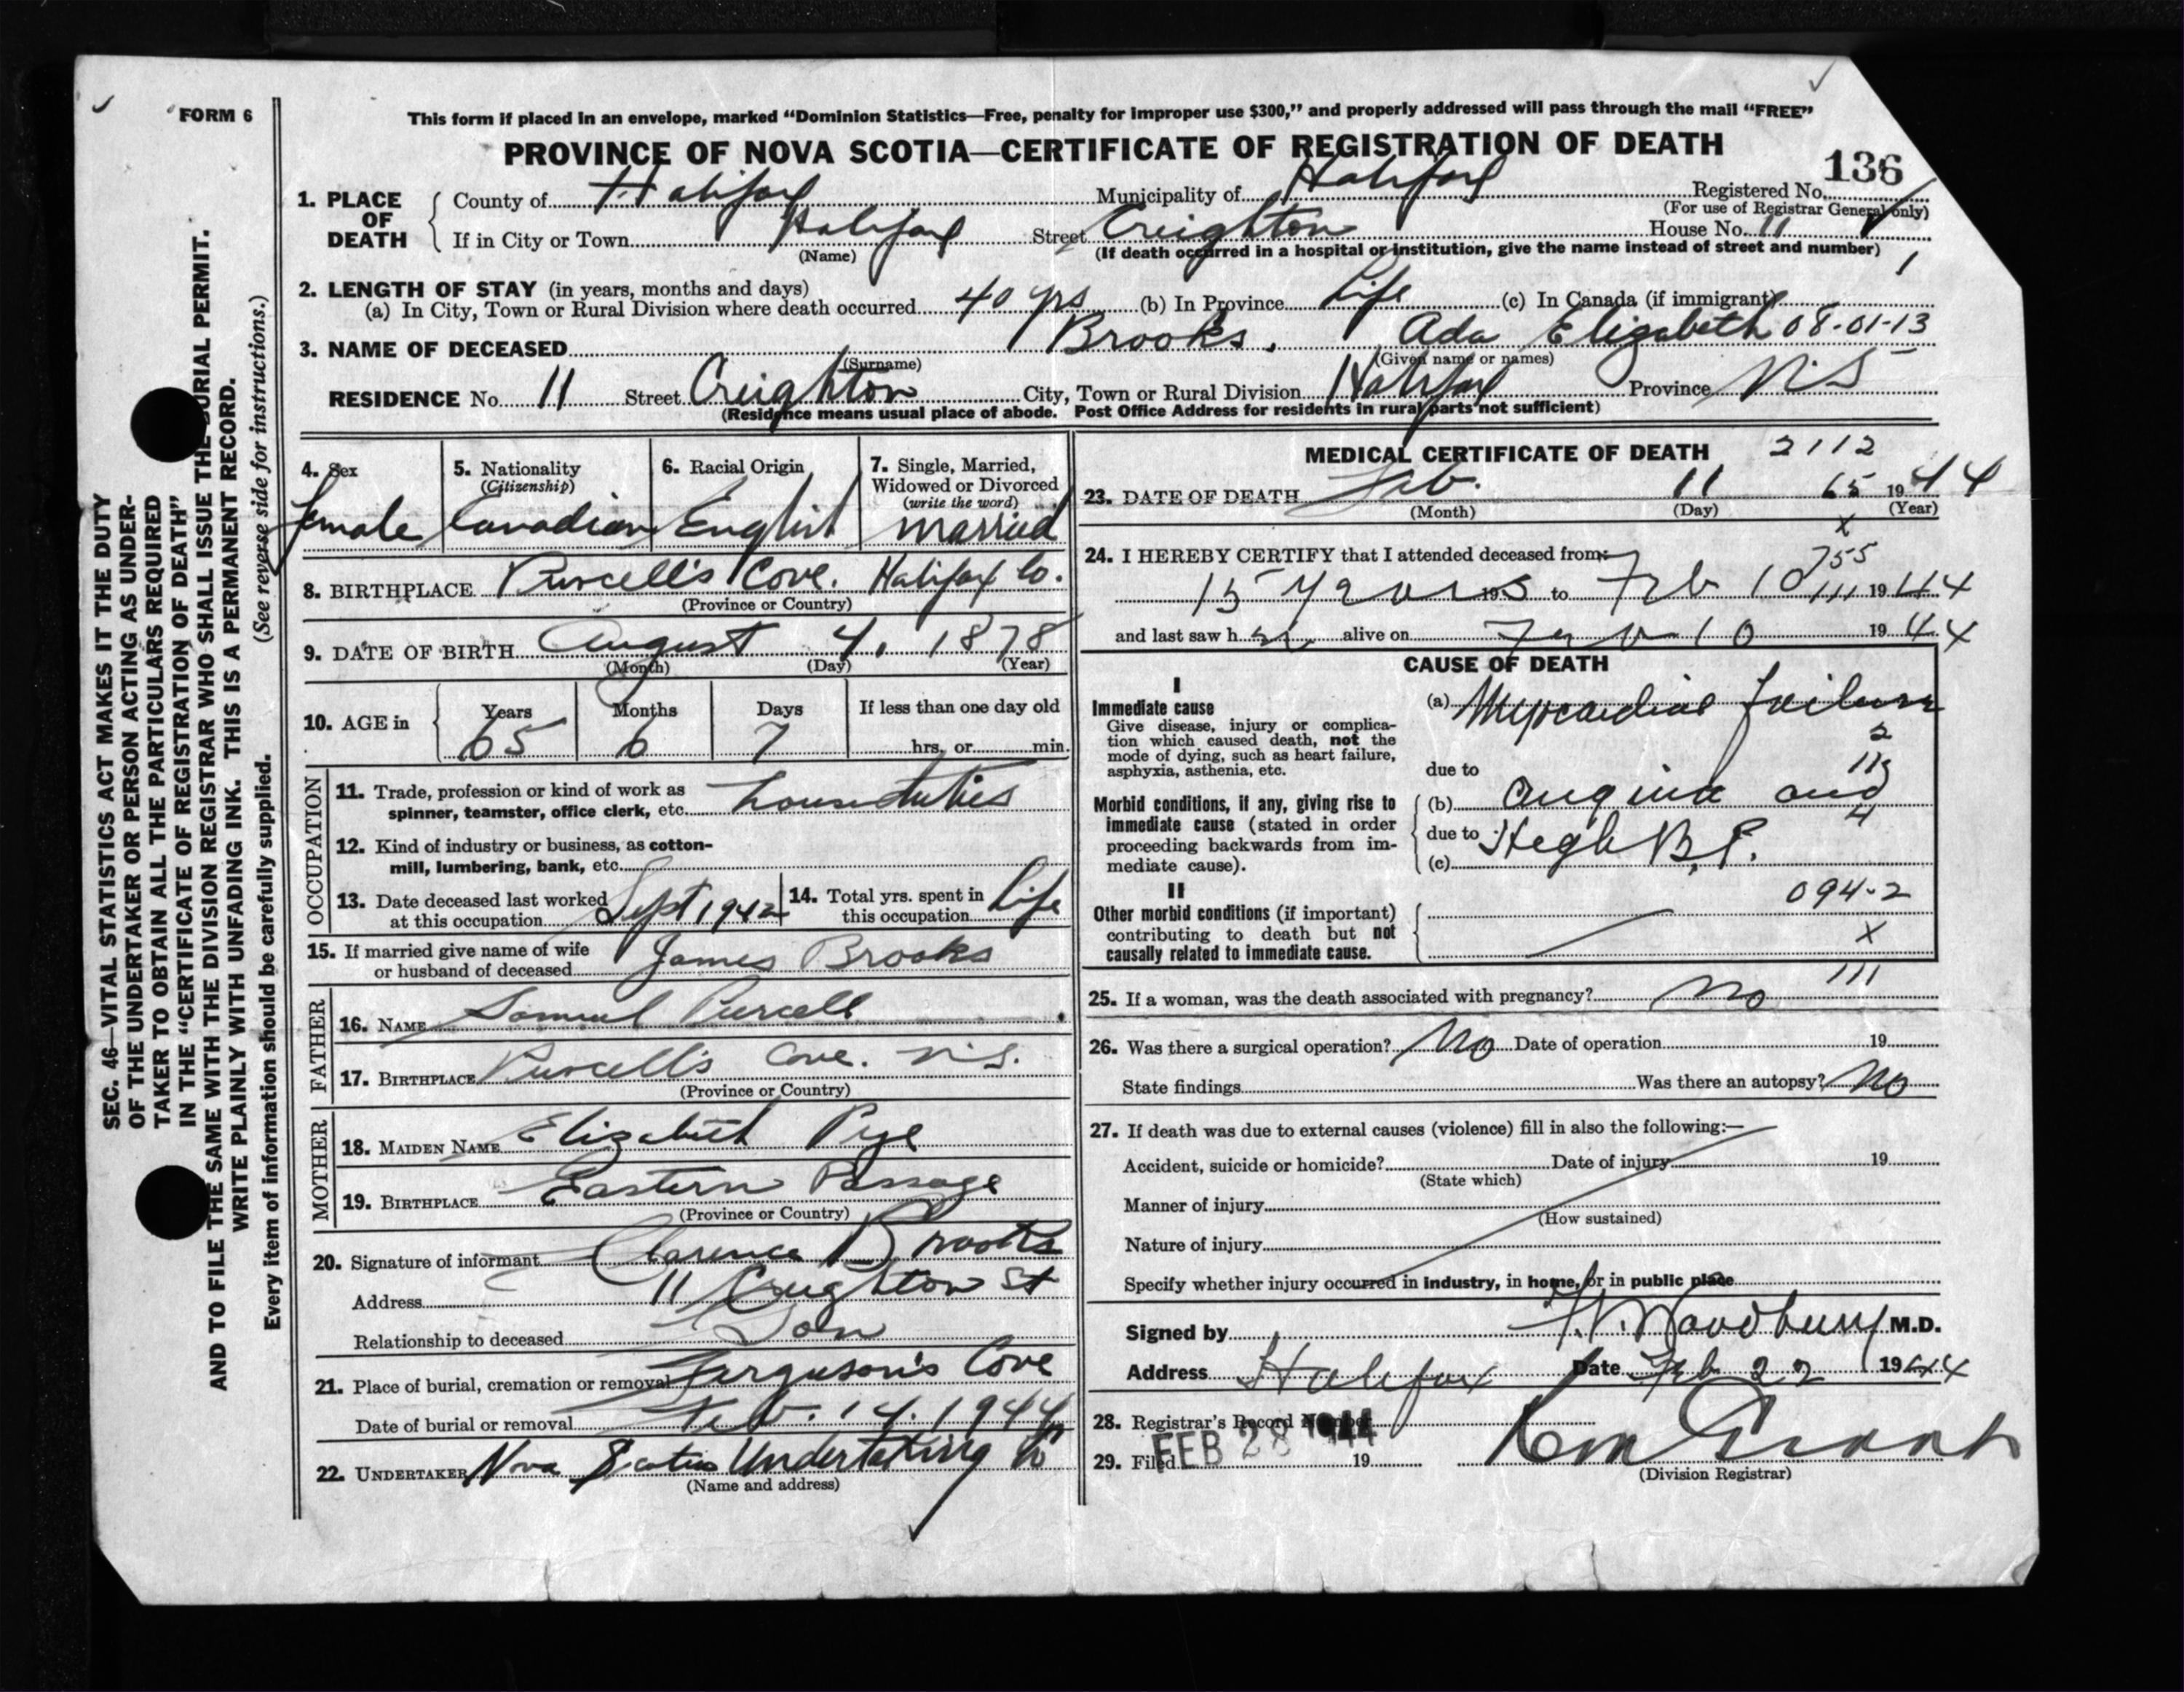 FORM 6
This form if placed in an envelope, marked "Dominion Statistics—Free, penalty for improper use $300," and properly addressed will pass through the mail "FREE"
PROVINCE OF NOVA SCOTIA—CERTIFICATE OF REGISTRATION OF DEATH
136
1. PLACE OF DEATH
County of Halifax Municipality of Halifax Registered No.
(For use of Registrar General only)
If in City or Town Halifax Street Creighton House No. 11
(Name) (If death occurred in a hospital or institution, give the name instead of street and number)
1
2. LENGTH OF STAY (in years, months and days)
(a) In City, Town or Rural Division where death occurred 40 yrs (b) In Province Life (c) In Canada (if immigrant)
3. NAME OF DECEASED Brooks. Ada Elizabeth 08-01-13
(Surname) (Given name or names)
RESIDENCE No. 11 Street Creighton City, Town or Rural Division Halifax Province N.S
(Residence means usual place of abode. Post Office Address for residents in rural parts not sufficient)
4. Sex 5. Nationality 6. Racial Origin 7. Single, Married,
(Citizenship) Widowed or Divorced
(write the word)
Female Canadian English married
8. BIRTHPLACE Purcell's Cove. Halifax Co.
(Province or Country)
9. DATE OF BIRTH August 4, 1878
(Month) (Day) (Year)
10. AGE in Years Months Days If less than one day old
65 6 7 hrs. or min.
OCCUPATION
11. Trade, profession or kind of work as
spinner, teamster, office clerk, etc. house duties
12. Kind of industry or business, as cotton-
mill, lumbering, bank, etc.
13. Date deceased last worked
at this occupation Sept 1942
14. Total yrs. spent in
this occupation Life
15. If married give name of wife
or husband of deceased James Brooks
FATHER
16. NAME Samuel Purcell
17. BIRTHPLACE Purcell's Cove. N.S.
(Province or Country)
MOTHER
18. MAIDEN NAME Elizabeth Pye
19. BIRTHPLACE Eastern Passage
(Province or Country)
20. Signature of informant Clarence Brooks
Address 11 Creighton St
Relationship to deceased Son
21. Place of burial, cremation or removal Ferguson's Cove
Date of burial or removal Feb. 14. 1944
22. UNDERTAKER Nova Scotia Undertaking Co
(Name and address)
MEDICAL CERTIFICATE OF DEATH 2112
23. DATE OF DEATH Feb. 11 65 1944
(Month) (Day) (Year)
x
24. I HEREBY CERTIFY that I attended deceased from:
755
15 years 193 to Feb 10 111 1944
and last saw h er alive on Feb 10 1944
CAUSE OF DEATH
I
Immediate cause
Give disease, injury or complica-
tion which caused death, not the
mode of dying, such as heart failure,
asphyxia, asthenia, etc.
(a) Myocardial failure
2
due to
113
Morbid conditions, if any, giving rise to
immediate cause (stated in order
proceeding backwards from im-
mediate cause).
(b) angina and
4
due to High B.P.
(c)
II
094-2
Other morbid conditions (if important)
contributing to death but not
causally related to immediate cause.
x
111
25. If a woman, was the death associated with pregnancy? no
26. Was there a surgical operation? No Date of operation 19
State findings Was there an autopsy? No
27. If death was due to external causes (violence) fill in also the following:—
Accident, suicide or homicide? Date of injury 19
(State which)
Manner of injury
(How sustained)
Nature of injury
Specify whether injury occurred in industry, in home, or in public place
Signed by Woodbury M.D.
Address Halifax Date Feb 22 1944
28. Registrar's Record Number
29. Filed FEB 28 1944 19
(Division Registrar)
SEC. 46—VITAL STATISTICS ACT MAKES IT THE DUTY
OF THE UNDERTAKER OR PERSON ACTING AS UNDER-
TAKER TO OBTAIN ALL THE PARTICULARS REQUIRED
IN THE "CERTIFICATE OF REGISTRATION OF DEATH"
AND TO FILE THE SAME WITH THE DIVISION REGISTRAR WHO SHALL ISSUE THE BURIAL PERMIT.
WRITE PLAINLY WITH UNFADING INK. THIS IS A PERMANENT RECORD.
Every item of information should be carefully supplied. (See reverse side for instructions.)